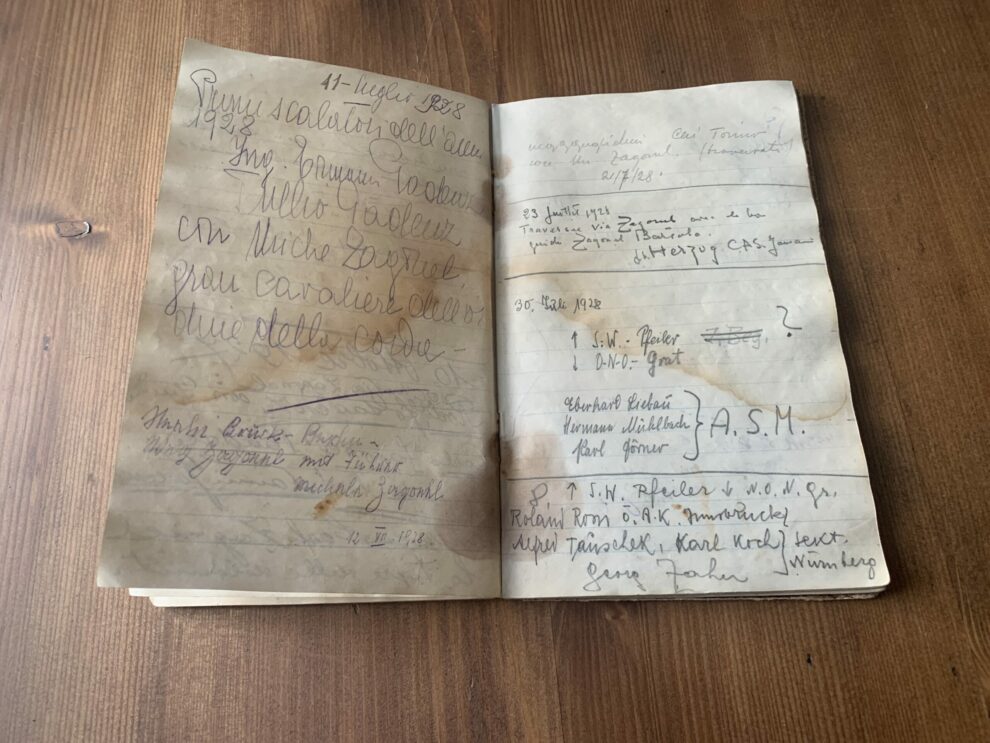 11 - luglio 1928
Primi scalatori dell'anno
1928
Ing. Ermann Gadenz
Tullio Gadenz
con Miche Zagonel
gran cavaliere dell'or
dine della corda -
mit Führer
Michele Zagonel
12 VII 1928.
Cai Torino
con Zagonel. (traversata)
2/7/28.
23 Juillet 1928
Traversée via Zagonel avec le bon
guide Zagonel Bartolo.
Herzog C.A.S.
30. Juli 1928
↑ S.W. - Pfeiler ?
↓ O-N-O.- Grat
Eberhard Liebau
Hermann Mühlbach
Karl Görner
A.S.M.
↑ S.W. Pfeiler ↓ N.O.N. Gr.
Roland Ö.A.K. Innsbruck
Alfred Täuschek, Karl Koch } Sekt.
Nürnberg
Georg